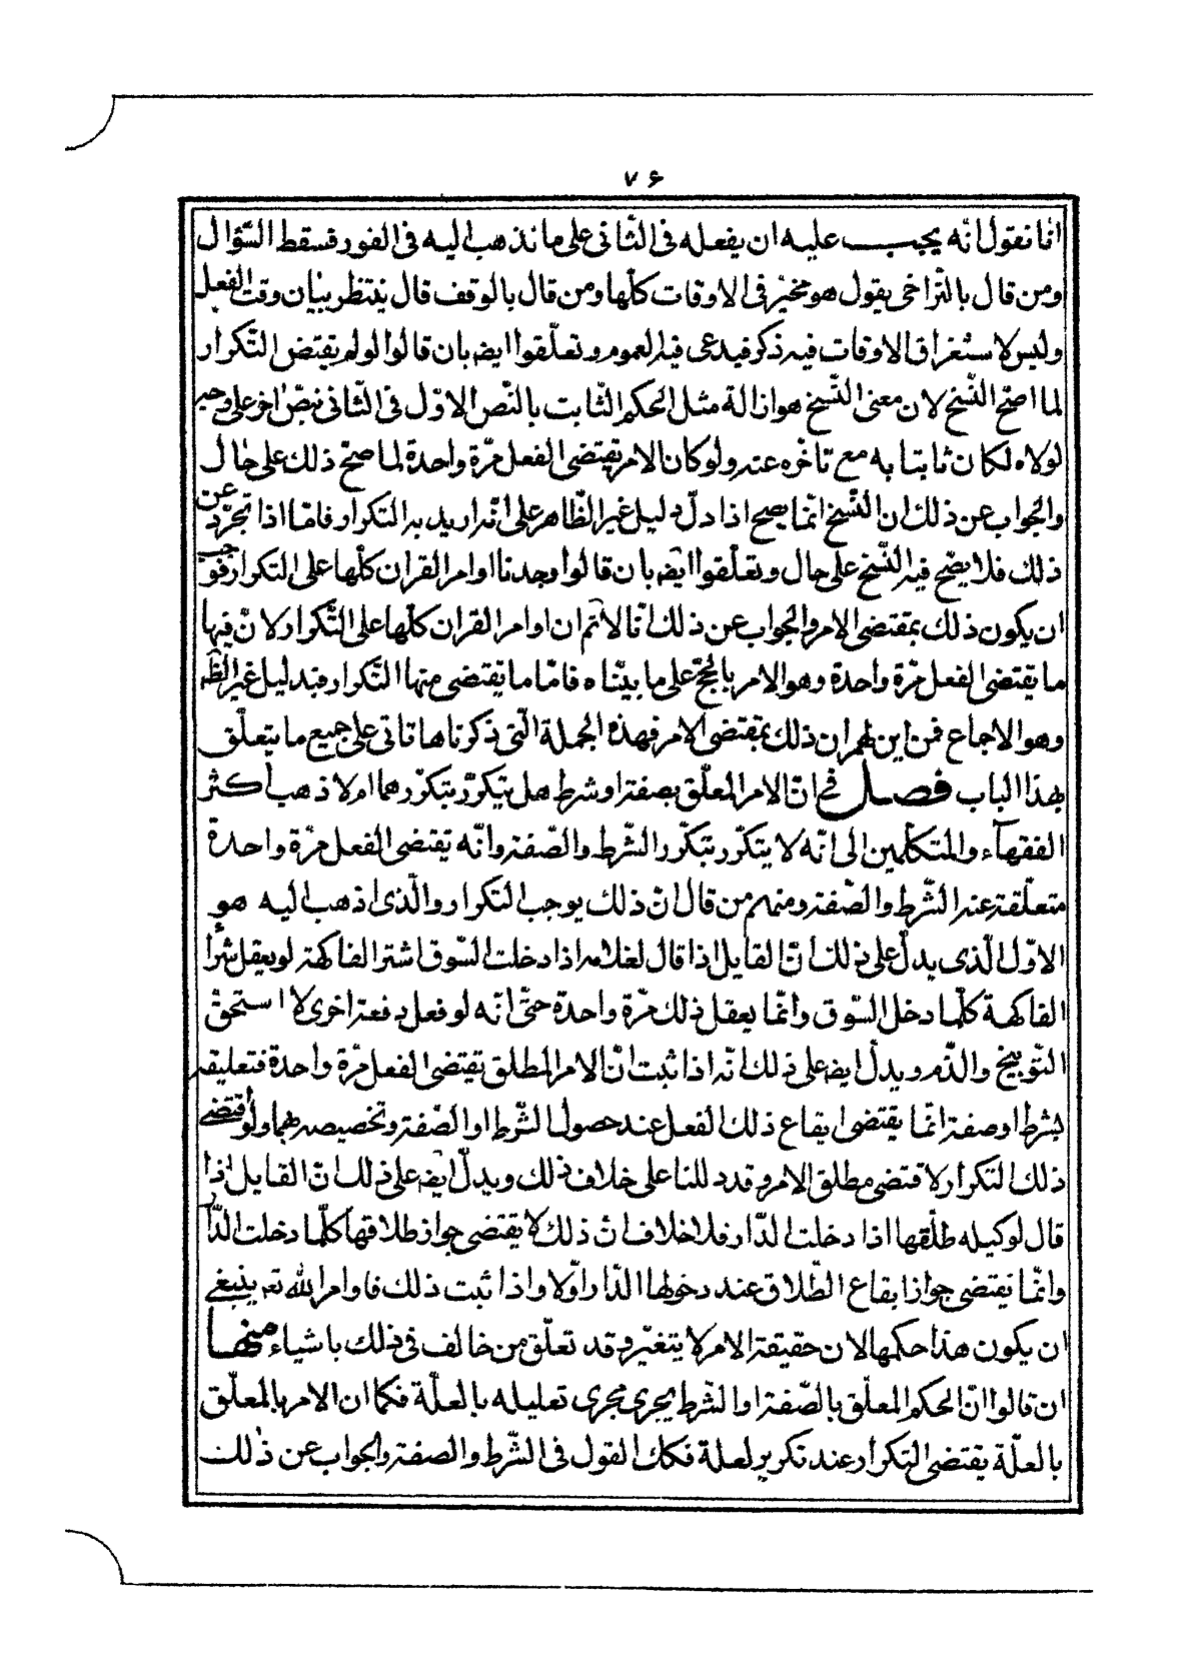 ٧۶
انا نقول انه يجب عليه ان يفعله فى الثّانى على ما نذهب اليه فى الفور فسقط السّؤال
ومن قال بالتّراخى يقول هو مخيّر فى الاوقات كلّها ومن قال بالوقف قال ينتظر بيان وقت الفعل
وليس لاستغراق الاوقات فيه ذكر فيدعى فيه العموم وتعلّقوا ايضه بان قالوا لو لم يقتض التّكرار
لما صحّ النّسخ لان معنى النّسخ هو ازالة مثل الحكم الثّابت بالنّص الاوّل فى الثّانى بنصّ اخر على وجه
لولاه لكان ثابتا به مع تاخّره عنه ولو كان الامر يقتضى الفعل مرّة واحدة لما صحّ ذلك على حال
والجواب عن ذلك ان النّسخ انّما يصح اذا دلّ دليل غير الظّاهر على انّه اريد به التّكرار فامّا اذا تجرّد عن
ذلك فلا يصّح فيه النّسخ على حال وتعلّقوا ايضه بان قالوا وجدنا اوامر القران كلّها على التكرار فوجب
ان يكون ذلك بمقتضى الامر والجواب عن ذلك انّا لا نم ان اوامر القران كلّها على التّكرار لانّ فيها
ما يقتضى الفعل مرّة واحدة وهو الامر بالحجّ على ما بيّناه فامّا ما يقتضى منها التّكرار فبدليل غير الظّه
وهو الاجماع فمن اين لهم ان ذلك بمقتضى الامر فهذه الجملة الّتى ذكرناها تاتى على جميع ما يتعلّق
بهذا الباب فصل فى انّ الامر المعلّق بصفة او شرط هل يتكرّر بتكرّرهما ام لا ذهب اكثر
الفقهآء والمتكلّمين الى انّه لا يتكرّر بتكرّر الشّرط والصّفة وانّه يقتضى الفعل مرّة واحدة
متعلّقة عند الشّرط والصّفة ومنهم من قال انّ ذلك يوجب التكرار والّذى اذهب اليه هو
الاوّل الّذى يدلّ على ذلك انّ القايل اذا قال لغلامه اذا دخلت السّوق اشتر الفاكهة لو يعقل شرآء
الفاكهة كلّما دخل السّوق وانّما يعقل ذلك مرّة واحدة حتّى انّه لو فعل دفعة اخرى لاستحقّ
التّوبيخ والذّم ويدلّ ايضه على ذلك انّه اذا ثبت انّ الامر المطلق يقتضى الفعل مرّة واحدة فتعليقه
بشرط او صفة انّما يقتضى ايقاع ذلك الفعل عند حصول الشّرط او الصّفة وتخصيصه بهما ولو اقتضى
ذلك التكرار لاقتضى مطلق الامر وقد دللنا على خلاف ذلك ويدلّ ايضه على ذلك انّ القايل اذا
قال لوكيله طلّقها اذا دخلت الدّار فلا خلاف انّ ذلك لا يقتضى جواز طلاقها كلّما دخلت الدّار
وانّما يقتضى جواز ايقاع الطّلاق عند دخولها الدّار اوّلا واذا ثبت ذلك فاوامر الله تعه ينبغى
ان يكون هذا حكمها لان حقيقة الامر لا يتغيّر وقد تعلّق من خالف فى ذلك باشياء منها
ان قالوا انّ الحكم المعلّق بالصّفة او الشّرط يجرى مجرى تعليله بالعلّة فكما ان الامر بالمعلّق
بالعلّة يقتضى التكرار عند تكرير لعلة فكك القول فى الشّرط والصفة والجواب عن ذلك